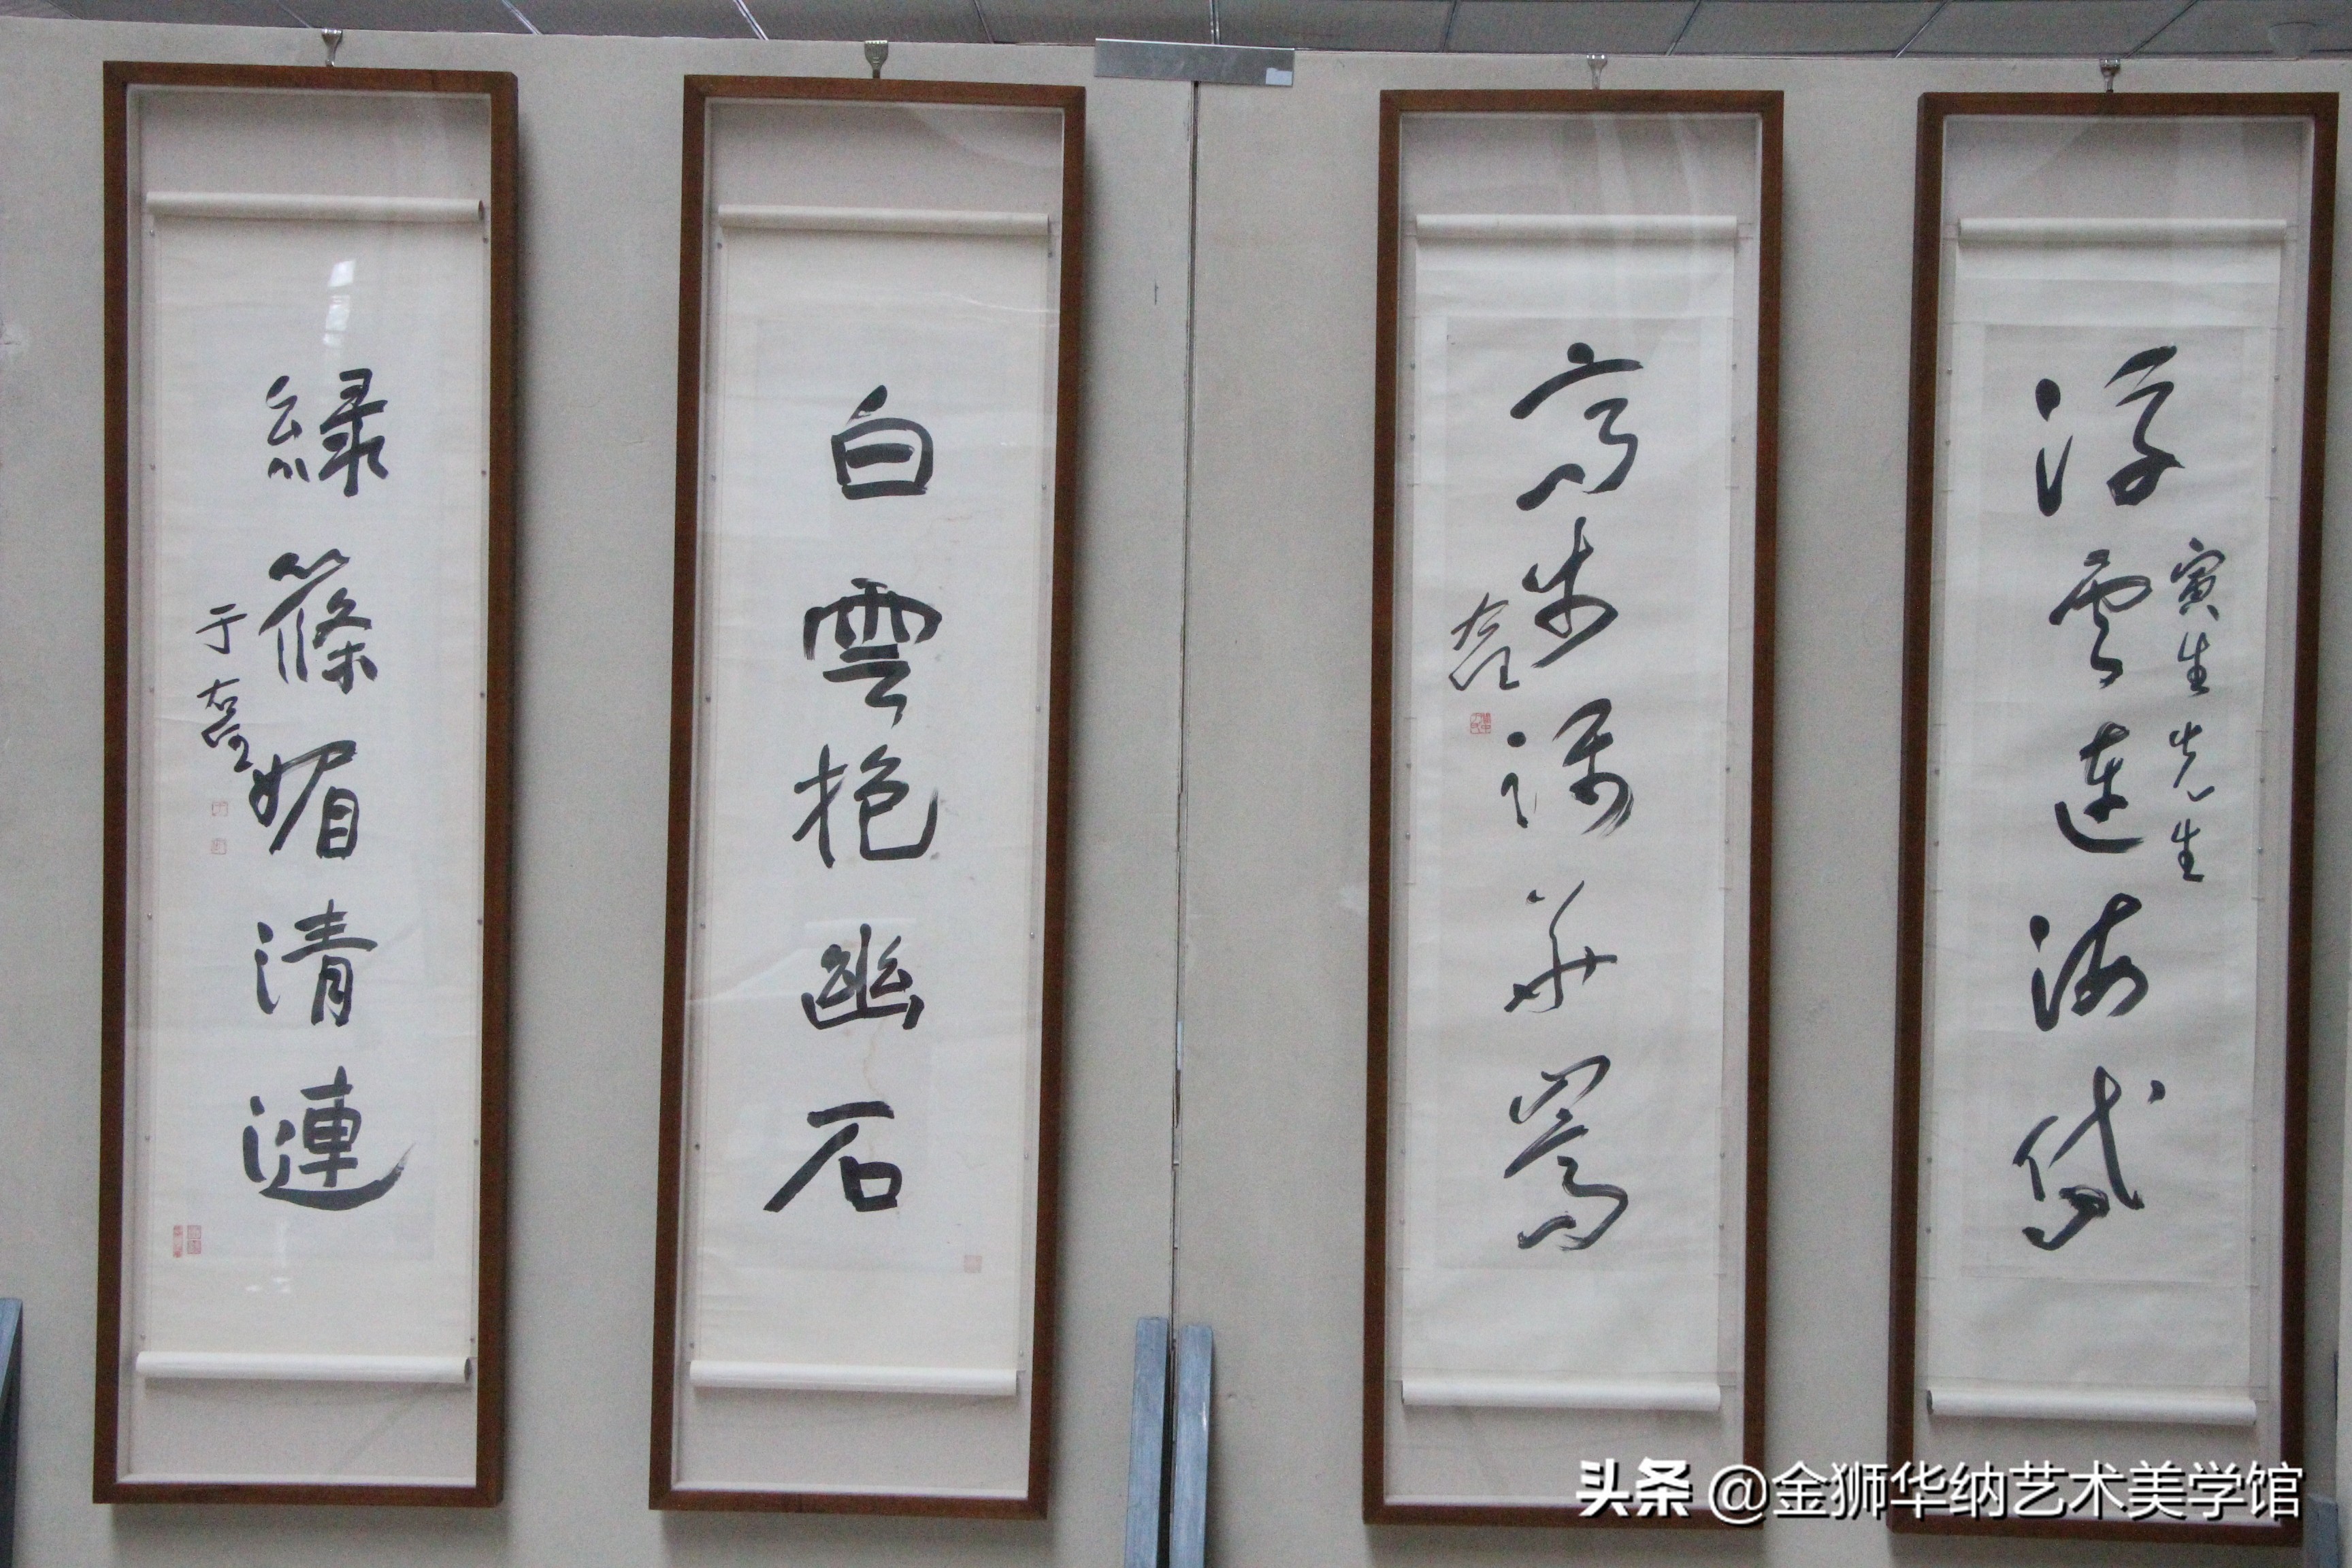 寅生先生
浮雲連海岱
高步 華嵩
右任
白雲抱幽石
綠篠媚清漣
于右任
头条 @金狮华纳艺术美学馆